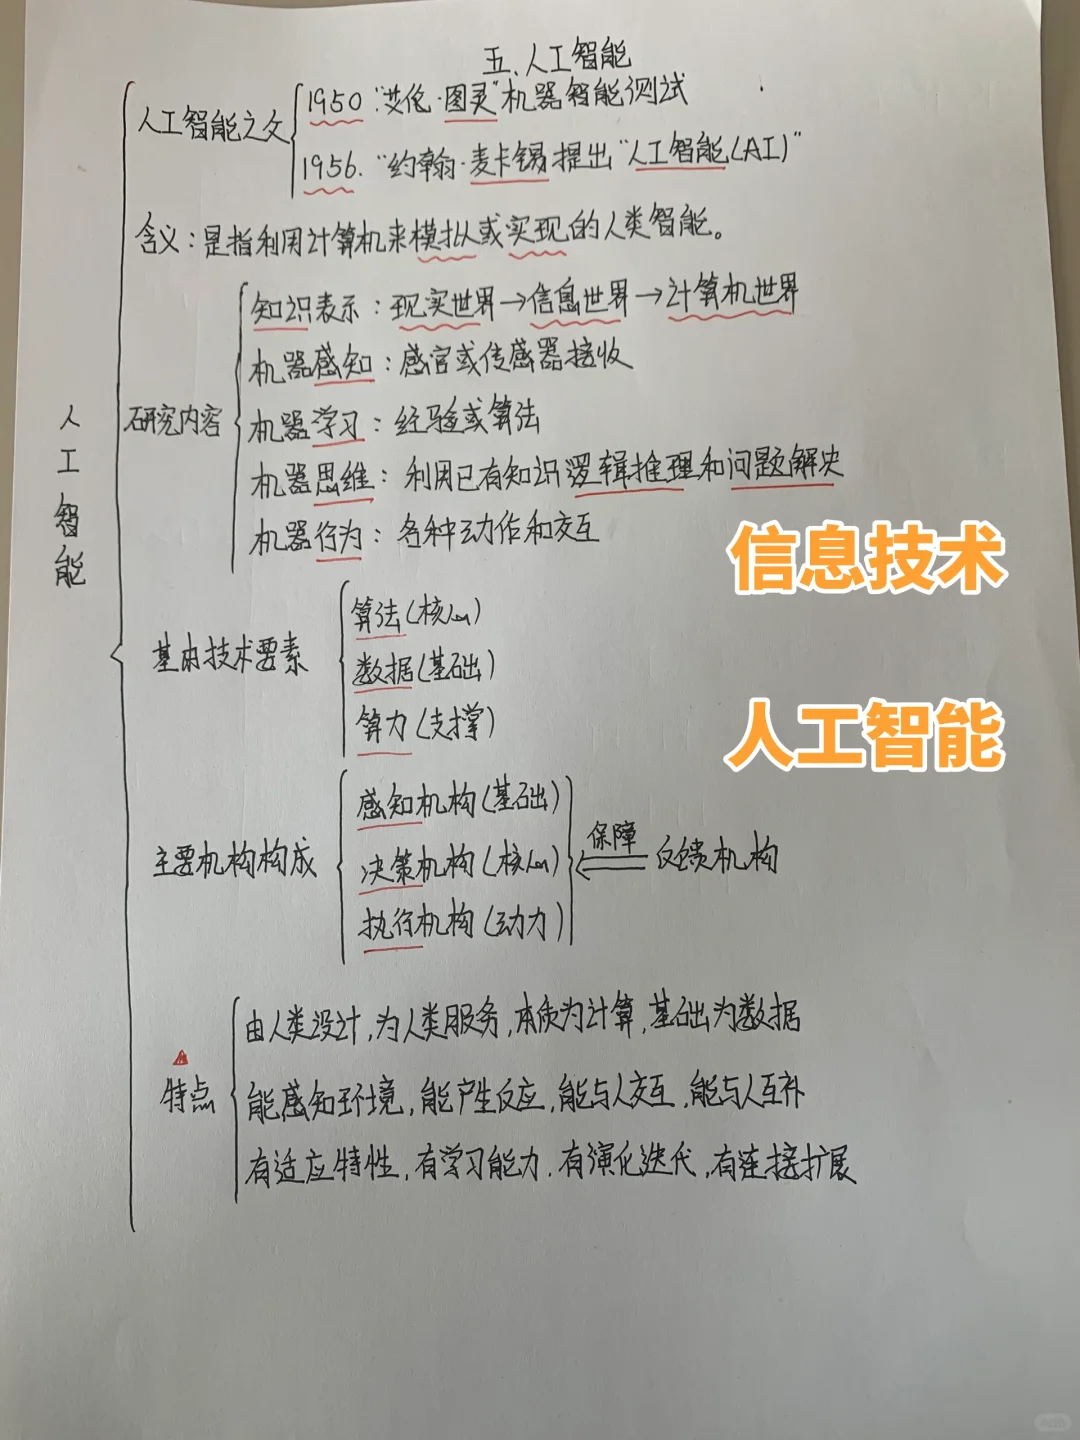 五、人工智能
人工智能之父
1950 "艾伦·图灵"机器智能测试
1956. "约翰·麦卡锡提出"人工智能(AI)"
含义:是指利用计算机来模拟或实现的人类智能。
人工智能
研究内容
知识表示:现实世界→信息世界→计算机世界
机器感知:感官或传感器接收
机器学习:经验或算法
机器思维:利用已有知识逻辑推理和问题解决
机器行为:各种动作和交互
信息技术
人工智能
基本技术要素
算法(核心)
数据(基础)
算力(支撑)
主要机构构成
感知机构(基础)
决策机构(核心)
执行机构(动力)
保障
反馈机构
特点
由人类设计,为人类服务,本质为计算,基础为数据
能感知环境,能产生反应,能与人交互,能与人互补
有适应特性,有学习能力.有演化迭代,有连接扩展